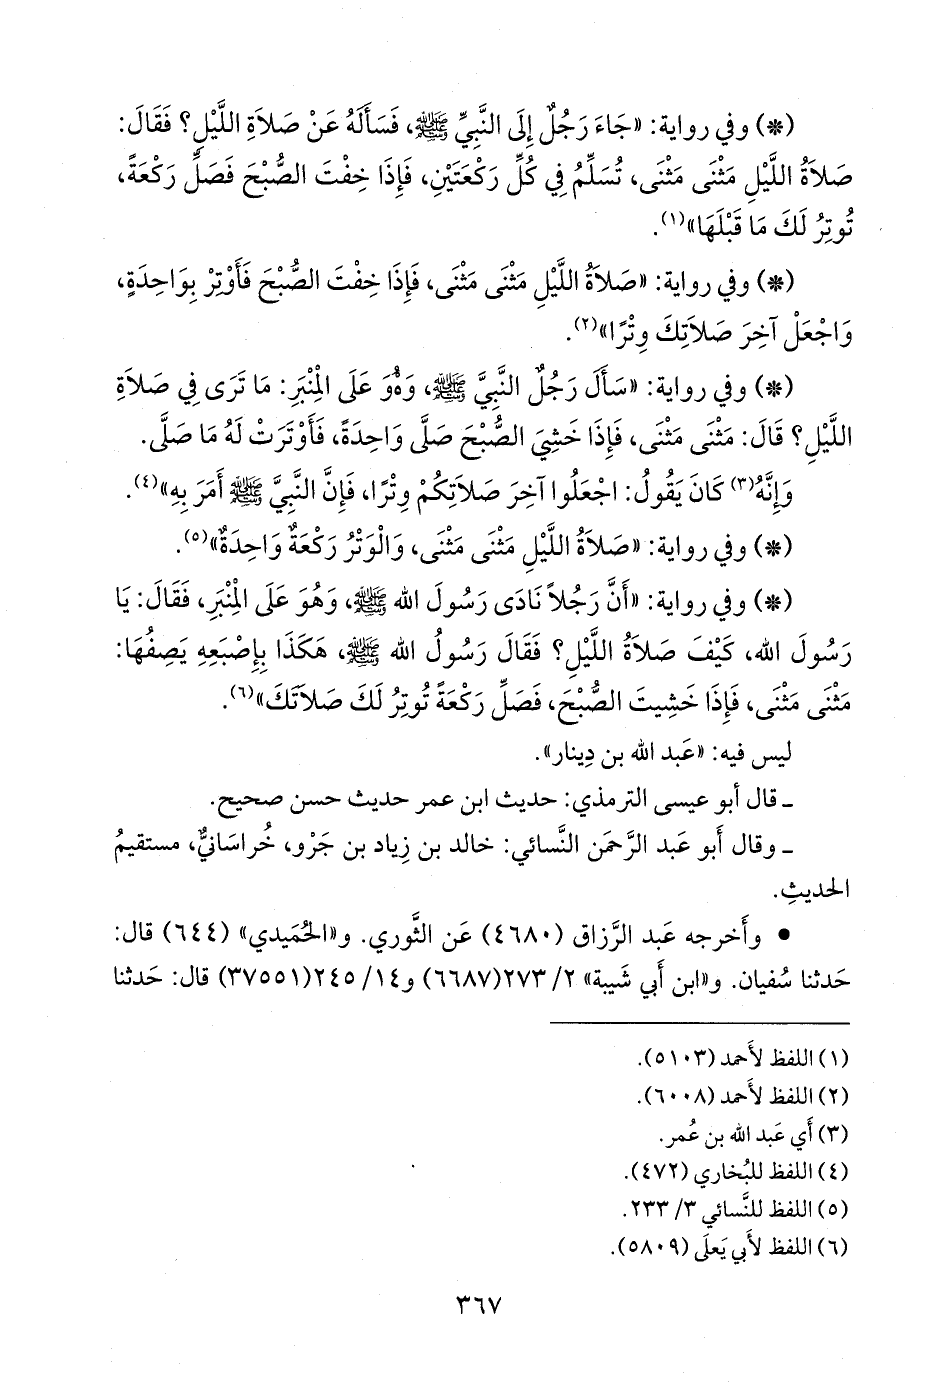 (*) وفي رواية: «جَاءَ رَجُلٌ إِلَى النَّبِيِّ ﷺ، فَسَأَلَهُ عَنْ صَلَاةِ اللَّيْلِ؟ فَقَالَ:
صَلَاةُ اللَّيْلِ مَثْنَى مَثْنَى، تُسَلِّمُ فِي كُلِّ رَكْعَتَيْنِ، فَإِذَا خِفْتَ الصُّبْحَ فَصَلِّ رَكْعَةً،
تُوتِرُ لَكَ مَا قَبْلَهَا»(١).
(*) وفي رواية: «صَلَاةُ اللَّيْلِ مَثْنَى مَثْنَى، فَإِذَا خِفْتَ الصُّبْحَ فَأَوْتِرْ بِوَاحِدَةٍ،
وَاجْعَلْ آخِرَ صَلَاتِكَ وِتْرًا»(٢).
(*) وفي رواية: «سَأَلَ رَجُلٌ النَّبِيَّ ﷺ، وَهُوَ عَلَى الْمِنْبَرِ: مَا تَرَى فِي صَلَاةِ
اللَّيْلِ؟ قَالَ: مَثْنَى مَثْنَى، فَإِذَا خَشِيَ الصُّبْحَ صَلَّى وَاحِدَةً، فَأَوْتَرَتْ لَهُ مَا صَلَّى.
وَإِنَّهُ(٣) كَانَ يَقُولُ: اجْعَلُوا آخِرَ صَلَاتِكُمْ وِتْرًا، فَإِنَّ النَّبِيَّ ﷺ أَمَرَ بِهِ»(٤).
(*) وفي رواية: «صَلَاةُ اللَّيْلِ مَثْنَى مَثْنَى، وَالْوَتْرُ رَكْعَةٌ وَاحِدَةٌ»(٥).
(*) وفي رواية: «أَنَّ رَجُلاً نَادَى رَسُولَ الله ﷺ، وَهُوَ عَلَى الْمِنْبَرِ، فَقَالَ: يَا
رَسُولَ الله، كَيْفَ صَلَاةُ اللَّيْلِ؟ فَقَالَ رَسُولُ الله ﷺ، هَكَذَا بِإِصْبَعِهِ يَصِفُهَا:
مَثْنَى مَثْنَى، فَإِذَا خَشِيتَ الصُّبْحَ، فَصَلِّ رَكْعَةً تُوتِرُ لَكَ صَلَاتَكَ»(٦).
ليس فيه: «عَبد الله بن دِينار».
ـ قال أبو عيسى الترمذي: حديث ابن عمر حديث حسن صحيح.
ـ وقال أَبو عَبد الرَّحمَن النَّسائي: خالد بن زِياد بن جَرْو، خُراسَانيٌّ، مستقيمُ
الحديثِ.
• وأَخرجه عَبد الرَّزاق (٤٦٨٠) عَن الثَّوري. و«الحُمَيدي» (٦٤٤) قال:
حَدثنا سُفيان. و«ابن أَبي شَيبة» ٢/ ٢٧٣(٦٦٨٧) و١٤/ ٢٤٥(٣٧٥٥١) قال: حَدثنا
(١) اللفظ لأَحمد (٥١٠٣).
(٢) اللفظ لأَحمد (٦٠٠٨).
(٣) أَي عَبد الله بن عُمر.
(٤) اللفظ للبُخاري (٤٧٢).
(٥) اللفظ للنَّسائي ٣/ ٢٣٣.
(٦) اللفظ لأَبي يَعلَى (٥٨٠٩).
٣٦٧